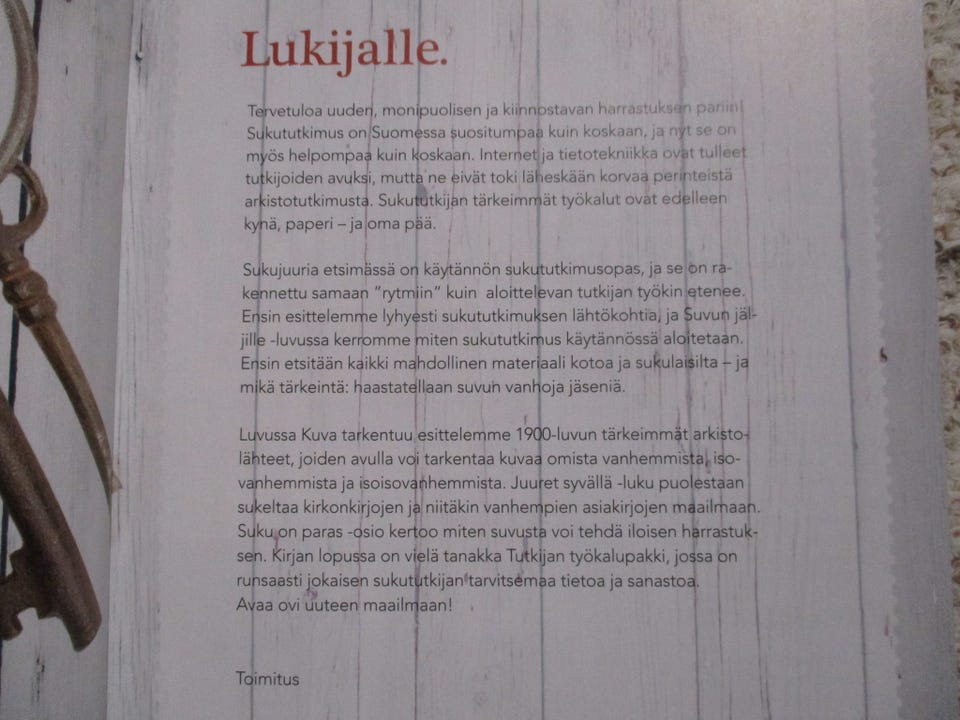 Lukijalle.
Tervetuloa uuden, monipuolisen ja kiinnostavan harrastuksen pariin!
Sukututkimus on Suomessa suositumpaa kuin koskaan, ja nyt se on
myös helpompaa kuin koskaan. Internet ja tietotekniikka ovat tulleet
tutkijoiden avuksi, mutta ne eivät toki läheskään korvaa perinteistä
arkistotutkimusta. Sukututkijan tärkeimmät työkalut ovat edelleen
kynä, paperi – ja oma pää.
Sukujuuria etsimässä on käytännön sukututkimusopas, ja se on ra-
kennettu samaan ”rytmiin” kuin aloittelevan tutkijan työkin etenee.
Ensin esittelemme lyhyesti sukututkimuksen lähtökohtia, ja Suvun jäl-
jille -luvussa kerromme miten sukututkimus käytännössä aloitetaan.
Ensin etsitään kaikki mahdollinen materiaali kotoa ja sukulaisilta – ja
mikä tärkeintä: haastatellaan suvun vanhoja jäseniä.
Luvussa Kuva tarkentuu esittelemme 1900-luvun tärkeimmät arkisto-
lähteet, joiden avulla voi tarkentaa kuvaa omista vanhemmista, iso-
vanhemmista ja isoisovanhemmista. Juuret syvällä -luku puolestaan
sukeltaa kirkonkirjojen ja niitäkin vanhempien asiakirjojen maailmaan.
Suku on paras -osio kertoo miten suvusta voi tehdä iloisen harrastuk-
sen. Kirjan lopussa on vielä tanakka Tutkijan työkalupakki, jossa on
runsaasti jokaisen sukututkijan tarvitsemaa tietoa ja sanastoa.
Avaa ovi uuteen maailmaan!
Toimitus